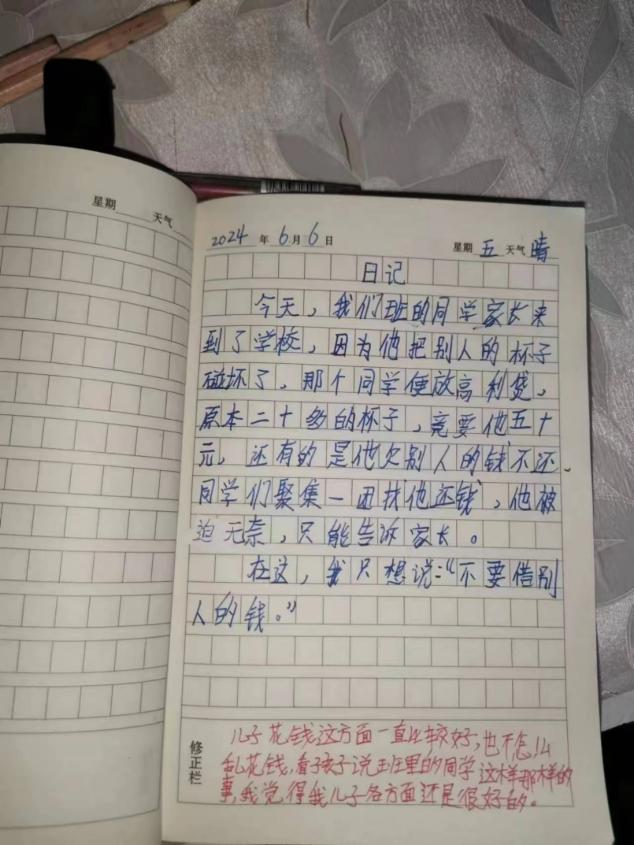 星期 天气
2024 年 6 月 6 日 星期 五 天气 晴
日记
今天，我们班的同学家长来
到了学校，因为他把别人的杯子
碰坏了，那个同学便放高利贷，
原本二十多的杯子，竟要他五十
元，还有的是他欠别人的钱不还，
同学们聚集一团找他还钱，他被
迫无奈，只能告诉家长。
在这，我只想说：“不要借别
人的钱。”
修正栏
儿子花钱这方面一直比较好，也不怎么
乱花钱，看孩子说班里的同学这样那样的
事，我觉得我儿子各方面还是很好的。